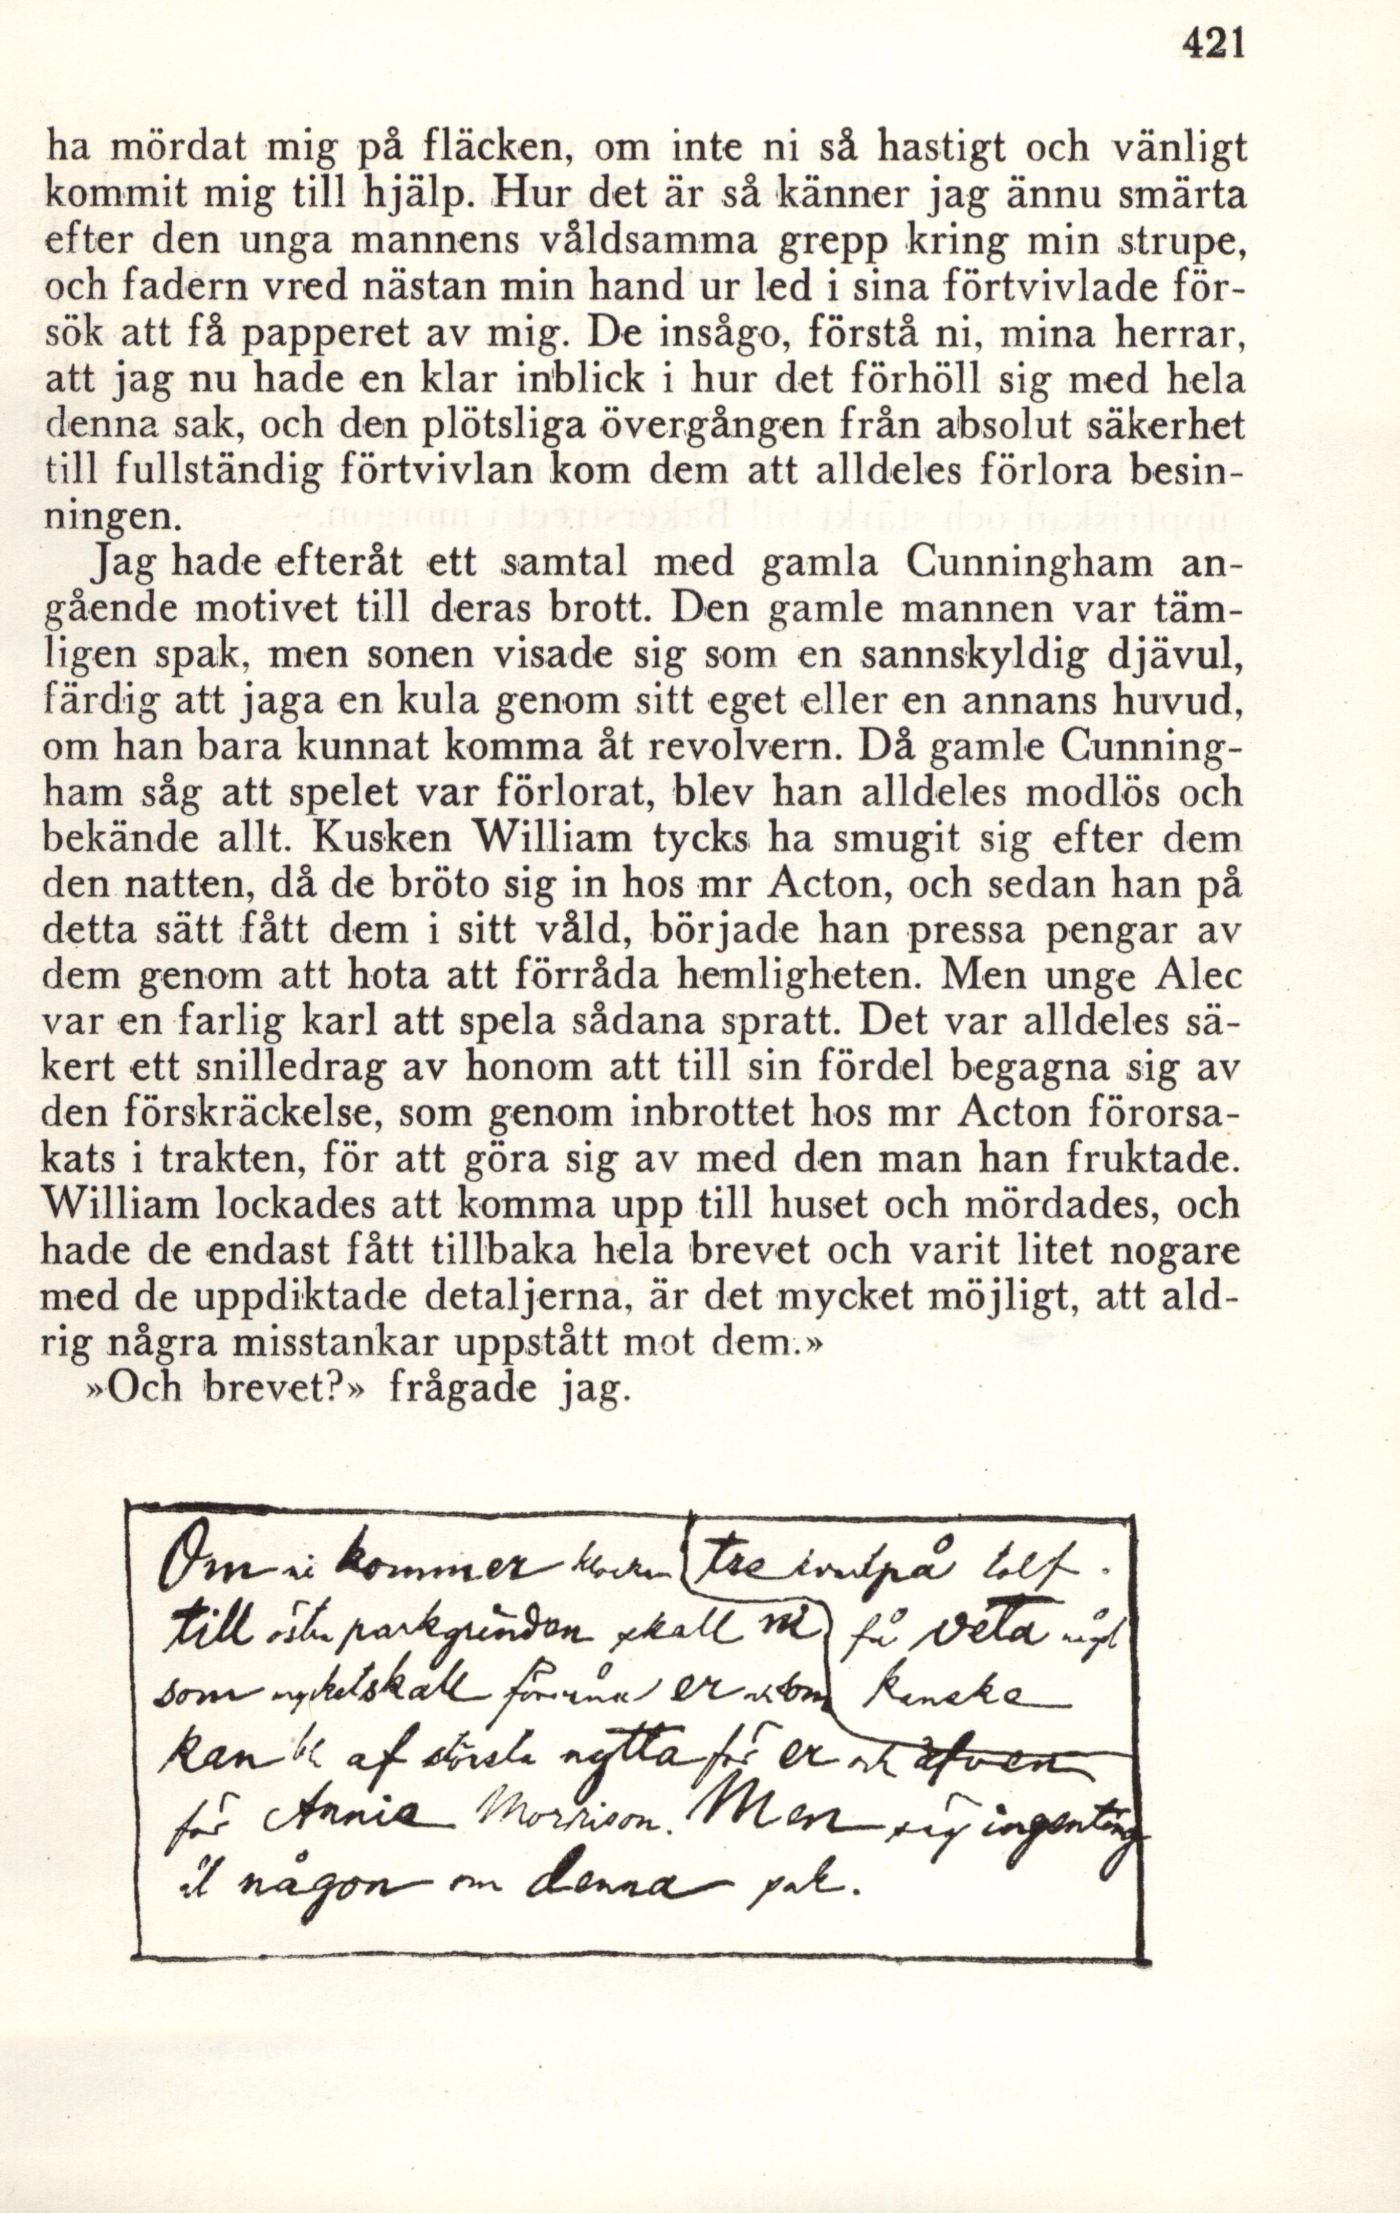 421
ha mördat mig på fläcken, om inte ni så hastigt och vänligt
kommit mig till hjälp. Hur det är så känner jag ännu smärta
efter den unga mannens våldsamma grepp kring min strupe,
och fadern vred nästan min hand ur led i sina förtvivlade för-
sök att få papperet av mig. De insågo, förstå ni, mina herrar,
att jag nu hade en klar inblick i hur det förhöll sig med hela
denna sak, och den plötsliga övergången från absolut säkerhet
till fullständig förtvivlan kom dem att alldeles förlora besin-
ningen.
Jag hade efteråt ett samtal med gamla Cunningham an-
gående motivet till deras brott. Den gamle mannen var täm-
ligen spak, men sonen visade sig som en sannskyldig djävul,
färdig att jaga en kula genom sitt eget eller en annans huvud,
om han bara kunnat komma åt revolvern. Då gamle Cunning-
ham såg att spelet var förlorat, blev han alldeles modlös och
bekände allt. Kusken William tycks ha smugit sig efter dem
den natten, då de bröto sig in hos mr Acton, och sedan han på
detta sätt fått dem i sitt våld, började han pressa pengar av
dem genom att hota att förråda hemligheten. Men unge Alec
var en farlig karl att spela sådana spratt. Det var alldeles sä-
kert ett snilledrag av honom att till sin fördel begagna sig av
den förskräckelse, som genom inbrottet hos mr Acton förorsa-
kats i trakten, för att göra sig av med den man han fruktade.
William lockades att komma upp till huset och mördades, och
hade de endast fått tillbaka hela brevet och varit litet nogare
med de uppdiktade detaljerna, är det mycket möjligt, att ald-
rig några misstankar uppstått mot dem.»
»Och brevet?» frågade jag.
Om ni kommer klockan tre kvart på tolf
till östra parkgrinden skall ni få veta något
som mycket skall förvåna er och som kanske
kan bli af största nytta för er och äfven
för Annie Morrison. Men säg ingenting
till någon om denna sak.